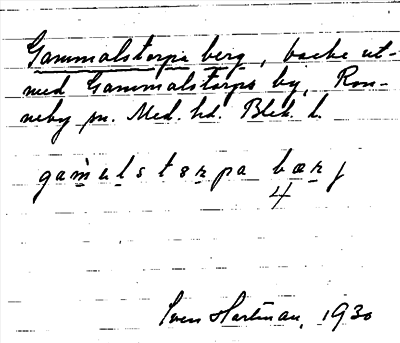 Gammalstorps berg, backe ut-
med Gammalstorps by, Ron-
neby sn. Med. hd. Blek. l.
gam̀ulstɷrpa bærj
4
Sven Hartman, 1930